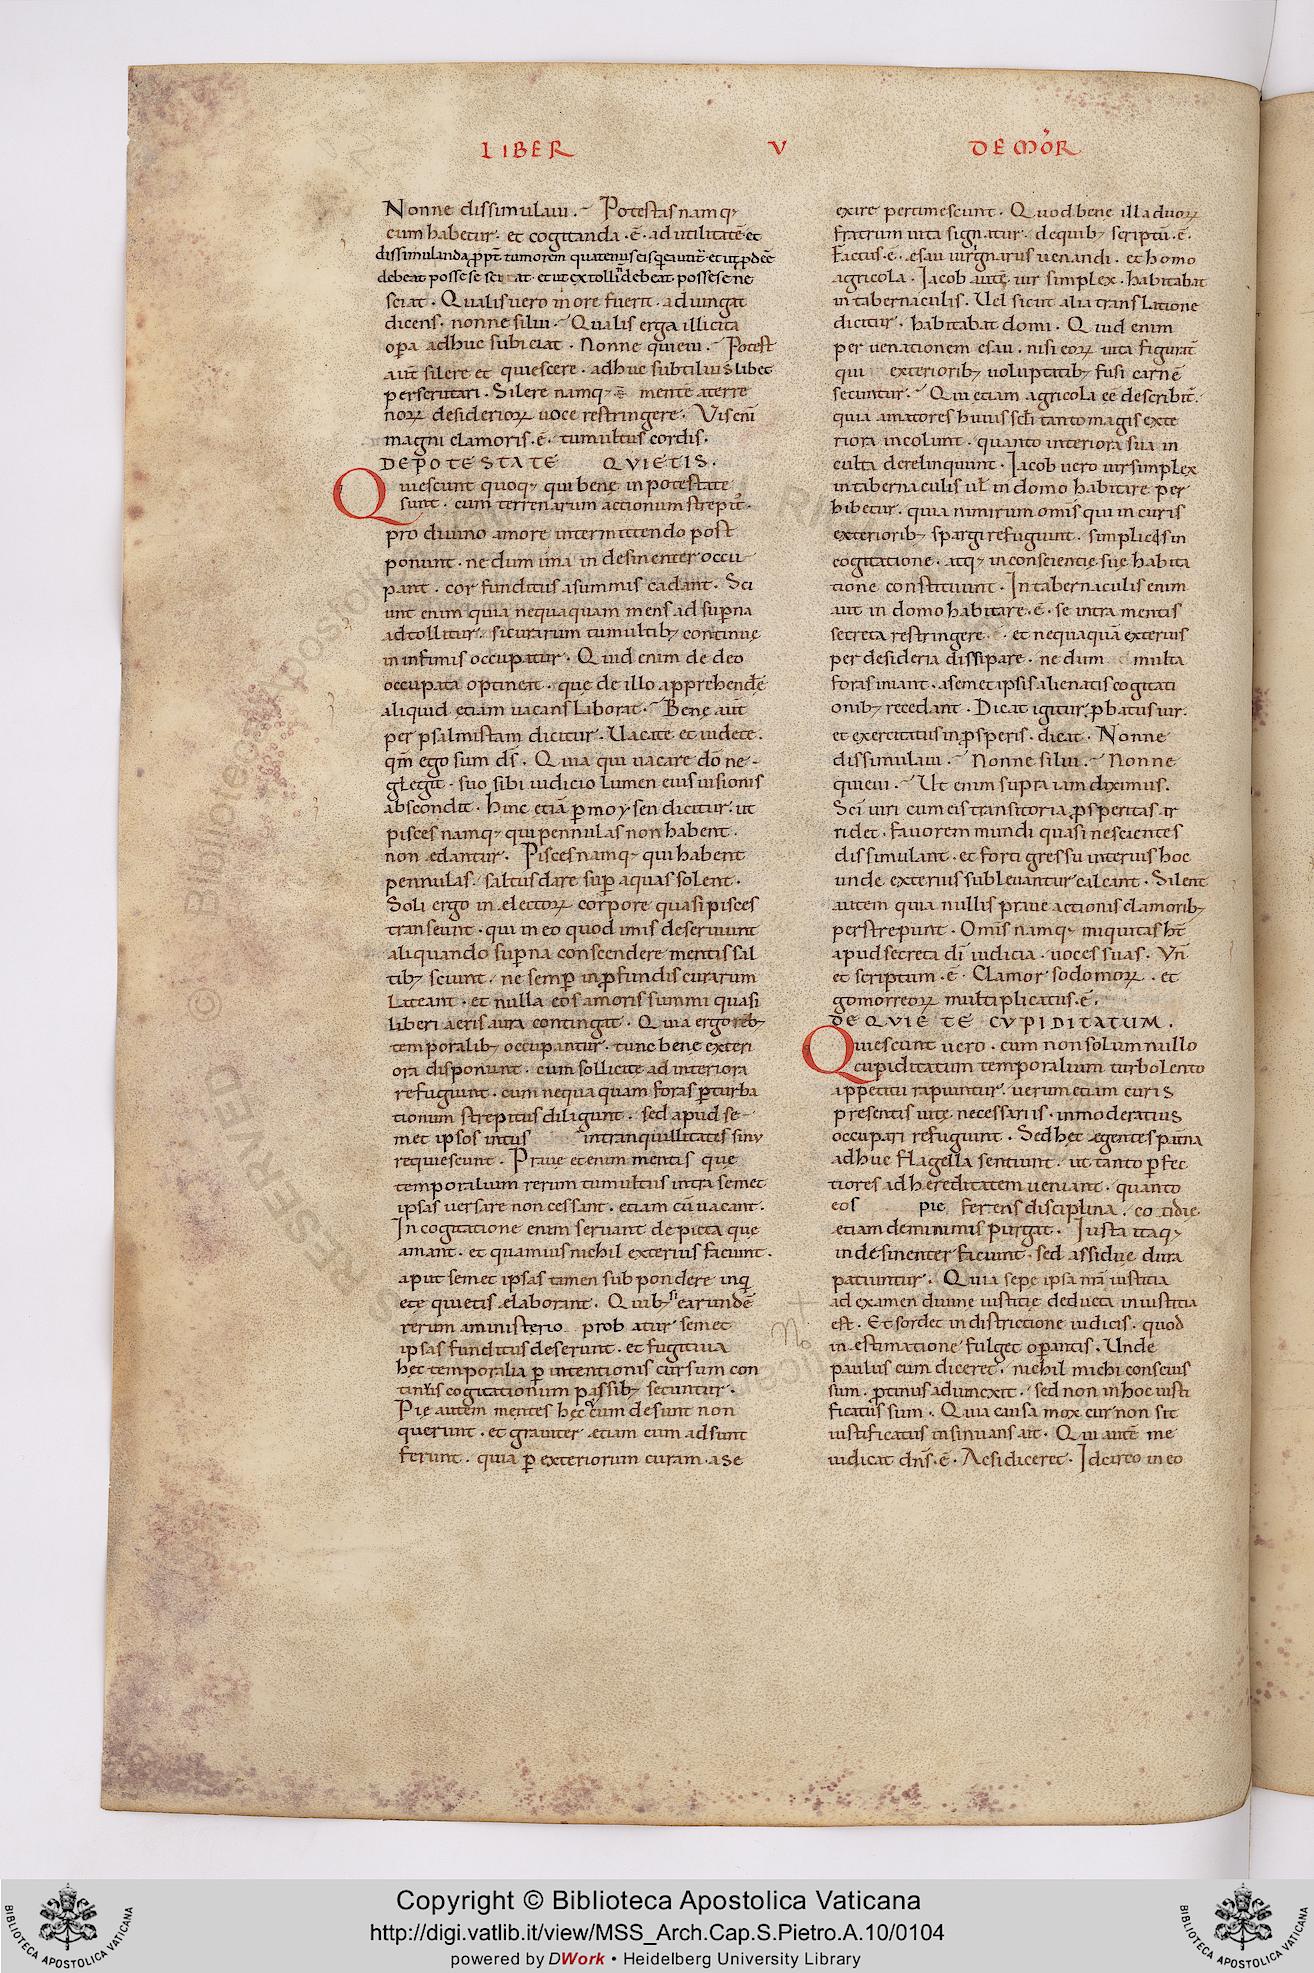 LIBER V DE MOR̄
Nonne dissimulaui. Potestas namq;
cum habetur. et cogitanda .ē. ad utilitatē. et
dissimulanda ꝓpt̄ tumorem quatenus
debeat posse se sciat. et ut extolli n̄ debeat posse se ne
sciat. Qualis uero in ore fuerit. adiungat
dicens. nonne silui. Qualis erga illicita
oꝑa adhuc subiciat. Nonne quieui. Potest
aut̄ silere et quiescere. adhuc subtilius libet
perscrutari. Silere namq; ē mentē a terre
norꝝ desideriorꝝ uoce restringere. Vis enī
magni clamoris .ē. tumultus cordis.
DE POTESTATE QVIETIS.
Quiescunt quoq; qui bene in potestate
sunt. cum terrenarum actionum strepit᷒.
pro diuino amore intermittendo post
ponunt. ne dum ima indesinenter occu
pant. cor funditus a summis cadant. Sci
unt enim quia nequaquam mens ad suꝑna
adtollitur. si curarum tumultib; continue
in infimis occupatur. Quid enim de deo
occupata optineat. que de illo apprehendē
aliquid etiam uacans laborat. Bene aut̄
per psalmistam dicitur. Uacate et uidete.
qm̄ ego sum ds̄. Quia qui uacare dō ne-
glegit. suo sibi iudicio lumen eius uisionis
abscondit. Hinc etiā ꝑ moysen dicitur. ut
pisces namq; qui pennulas non habent.
non edantur. Pisces namq; qui habent
pennulas. saltus dare suꝑ aquas solent.
Soli ergo in electorꝝ corpore quasi pisces
transeunt. qui in eo quod imis deseruiunt
aliquando suꝑna conscendere mentis sal
tib; sciunt. ne semꝑ in ꝓfundis curarum
lateant. et nulla eos amoris summi quasi
liberi aeris aura contingat. Quia ergo reb;
temporalib; occupantur. tunc bene exteri
ora disponunt. cum sollicite ad interiora
refugiunt. cum nequaquam foras ꝑturba
tionum strepitus diligunt. sed apud se-
met ipsos intus in tranquillitatis sinu
requiescunt. Praue etenim mentis que
temporalium rerum tumultus intra semet
ipsas uersare non cessant. etiam cū uacant.
In cogitatione enim seruant depicta que
amant. et quamuis nichil exterius faciunt.
aput semet ipsas tamen sub pondere inq
ete quietis elaborant. Quib; si earundē
rerum aministerio prob atur semet
ipsas funditus deserunt. et fugitiua
hec temporalia ꝑ intentionis cursum con
tinuis cogitationum passib; secuntur.
Pie autem mentes hec cum desunt non
querunt. et grauiter etiam cum adsunt
ferunt. quia ꝑ exteriorum curam. a se
exire pertimescunt. Quod bene illa duorꝝ
fratrum uita signatur. de quib; scriptū .ē.
Factus .ē. esau uir gnarus uenandi. et homo
agricola. Iacob autē uir simplex. habitabat
in tabernaculis. Uel sicut alia translatione
dicitur. habitabat domi. Quid enim
per uenationem esau. nisi eorꝝ uita figurat̄
qui exteriorib; uoluptatib; fusi carnē
secuntur. Qui etiam agricola eē describit᷒.
quia amatores huius scl̄i tanto magis exte
riora incolunt. quanto interiora sua in
culta derelinquunt. Iacob uero uir simplex
in tabernaculis ul̄ in domo habitare per
hibetur. quia nimirum omis qui in curis
exteriorib; spargi refugiunt. simplices in
cogitatione. atq; in conscientie sue habita
tione constituunt. In tabernaculis enim
aut in domo habitare .ē. se intra mentis
secreta restringere. et nequaquā exterius
per desideria dissipare. ne dum multa
foras iniant. a semet ipsis alienatis cogitati
onib; recedant. Dicat igitur ꝓbatus uir.
et exercitatus in ꝓsperis. dicat. Nonne
dissimulaui. Nonne silui. Nonne
quieui. Ut enim supra iam diximus.
Sci uiri cum eis transitoria ꝓsperitas ar
ridet. fauorem mundi quasi nescientes
dissimulant. et forti gressu interius hoc
unde exterius subleuantur calcant. Silent
autem quia nullis praue actionis clamorib;
perstrepunt. Omis namq; iniquitas ht̄
apud secreta dī iudicia. uoces suas. Vn̄
et scriptum .ē. Clamor sodomorꝝ. et
gomorreorꝝ multiplicatus .ē.
DE QVIETE CVPIDITATUM.
Quiescunt uero. cum non solum nullo
cupiditatum temporalium turbolento
appetitu rapiuntur. uerum etiam curis
presentis uite necessariis. inmoderatius
occupari refugiunt. Sed hec agentes
adhuc flagella sentiunt. ut tanto ꝑfec
tiores ad hereditatem ueniant. quanto
eos pie ferens disciplina. cotidie
etiam de minimis purgat. Iusta itaq;
indesinenter faciunt. sed assidue dura
patiuntur. Quia sepe ipsa nrā iustitia
ad examen diuine iustitie deducta iniustitia
est. Et sordet in districtione iudicis. quod
in estimatione fulget oꝑantis. Unde
paulus cum diceret. nichil michi conscius
sum. ꝓtinus adiuncxit. sed non in hoc iusti
ficatus sum. Quia causa mox cur non sit
iustificatus insinuans ait. Qui autē me
iudicat dn̄s .ē. Ac si diceret. Idcirco in eo
© Biblioteca Apostolica Vaticana
Copyright © Biblioteca Apostolica Vaticana
http://digi.vatlib.it/view/MSS_Arch.Cap.S.Pietro.A.10/0104
powered by DWork • Heidelberg University Library
BIBLIOTECA APOSTOLICA VATICANA
BIBLIOTECA APOSTOLICA VATICANA